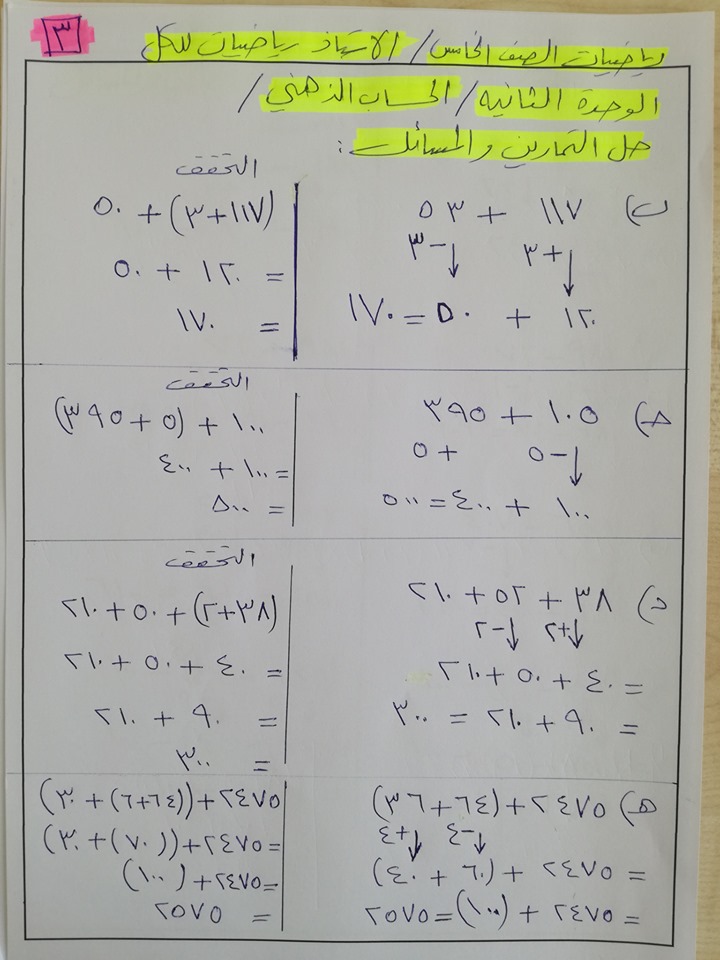 ٣
رياضيات الصف الخامس / الاستاذ رياضيات للكل
الوحدة الثانيه / الحساب الذهني /
حل التمارين والمسائل :
ب) ١١٧ + ٥٣
+٣ ↓ -٣ ↓
١٢٠ + ٥٠ = ١٧٠
التحقق
(١١٧+٣) + ٥٠
= ١٢٠ + ٥٠
= ١٧٠
ج) ١٠٥ + ٣٩٥
-٥ ↓ +٥
١٠٠ + ٤٠٠ = ٥٠٠
التحقق
١٠٠ + (٥ + ٣٩٥)
= ١٠٠ + ٤٠٠
= ٥٠٠
د) ٣٨ + ٥٢ + ٢١٠
+٢ ↓ -٢ ↓
= ٤٠ + ٥٠ + ٢١٠
= ٩٠ + ٢١٠ = ٣٠٠
التحقق
(٣٨+٢) + ٥٠ + ٢١٠
= ٤٠ + ٥٠ + ٢١٠
= ٩٠ + ٢١٠
= ٣٠٠
هـ) ٢٤٧٥ + (٦٤ + ٣٦)
-٤ ↓ +٤ ↓
= ٢٤٧٥ + (٦٠ + ٤٠)
= ٢٤٧٥ + (١٠٠) = ٢٥٧٥
٢٤٧٥ + ((٦٤+٦) + ٣٠)
= ٢٤٧٥ + ((٧٠) + ٣٠)
= ٢٤٧٥ + (١٠٠)
= ٢٥٧٥